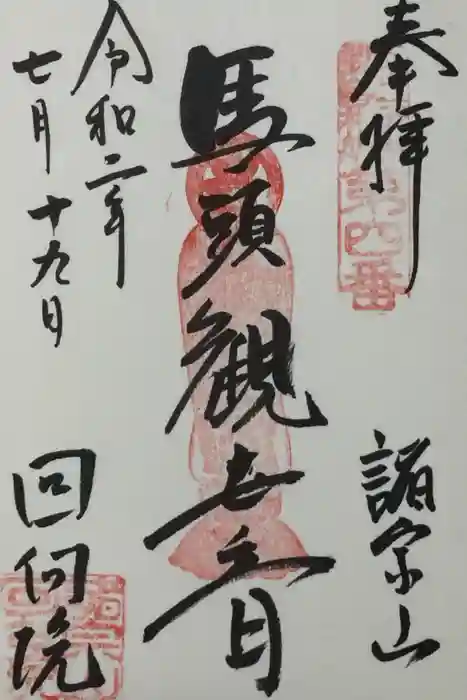 奉拝
第四番
諸宗山
馬頭觀世音
令和二年
七月十九日
回向院